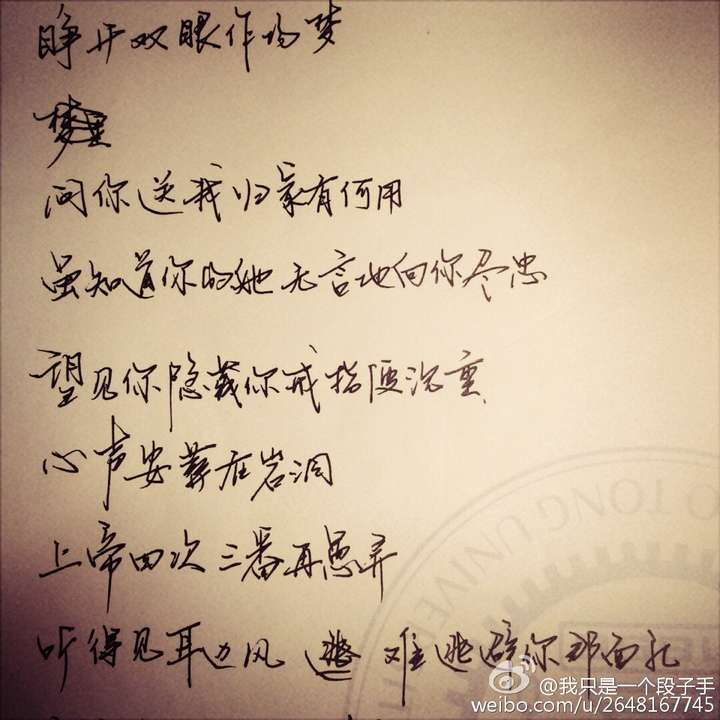 睁开双眼作场梦
问你送我归家有何用
虽知道你的她无言地向你尽忠
望见你隐藏你戒指便沉重
心声安葬在岩洞
上帝四次三番再愚弄
听得见耳边风 难逃避你那面孔
O TONG UNIVE
@我只是一个段子手
weibo.com/u/2648167745